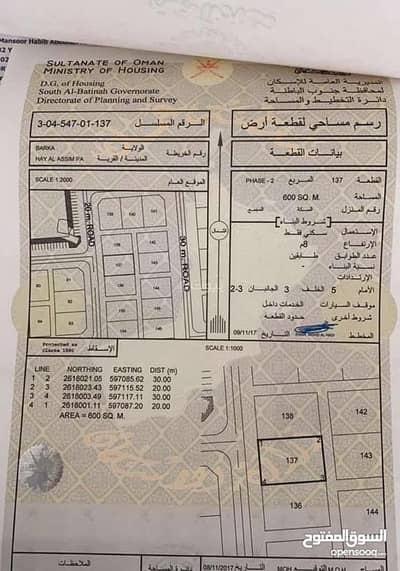 Mansoor Habib
SULTANATE OF OMAN
MINISTRY OF HOUSING
D.G. of Housing
South Al-Batinah Governorate
Directorate of Planning and Survey
المديرية العامة للاسكان
لمحافظة جنوب الباطنة
دائرة التخطيط و المساحة
3-04-547-01-137 الرقم المسلسل
رسم مساحي لقطعة أرض
BARKA الولاية
HAY AL ASSIM PA المدينة / القرية
رقم الخريطة
بيانات القطعة
SCALE 1:2000 الموقع العام
القطعة 137 المربع PHASE - 2
المساحة 600 SQ. M.
رقم المنزل السكة
شروط البناء
الاستعمال سكني فقط
الإرتفاع 8م
عدد الطوابق طابقين
نسبة البناء -
الإرتدادات
الأمام 5 الخلف 3 الجانبان 2-3
موقف السيارات الخدمات داخل
شروط أخرى حدود القطعة
المخطط التاريخ 09/11/17
20 m. ROAD
50 m. ROAD
شمال
Projected as
Clarke 1880
الإسقاط
SCALE 1:1000
LINE NORTHING EASTING DIST (m)
1 2 2618021.05 597085.62 30.00
2 3 2618023.43 597115.52 20.00
3 4 2618003.49 597117.11 30.00
4 1 2618001.11 597087.20 20.00
AREA = 600 SQ. M.
138
142
137
143
136
144
السوق المفتوح
opensooq.com
الملاحظات
دائرة المساحة
08/11/2017 التاريخ
MOH التوقيع
M.O.H